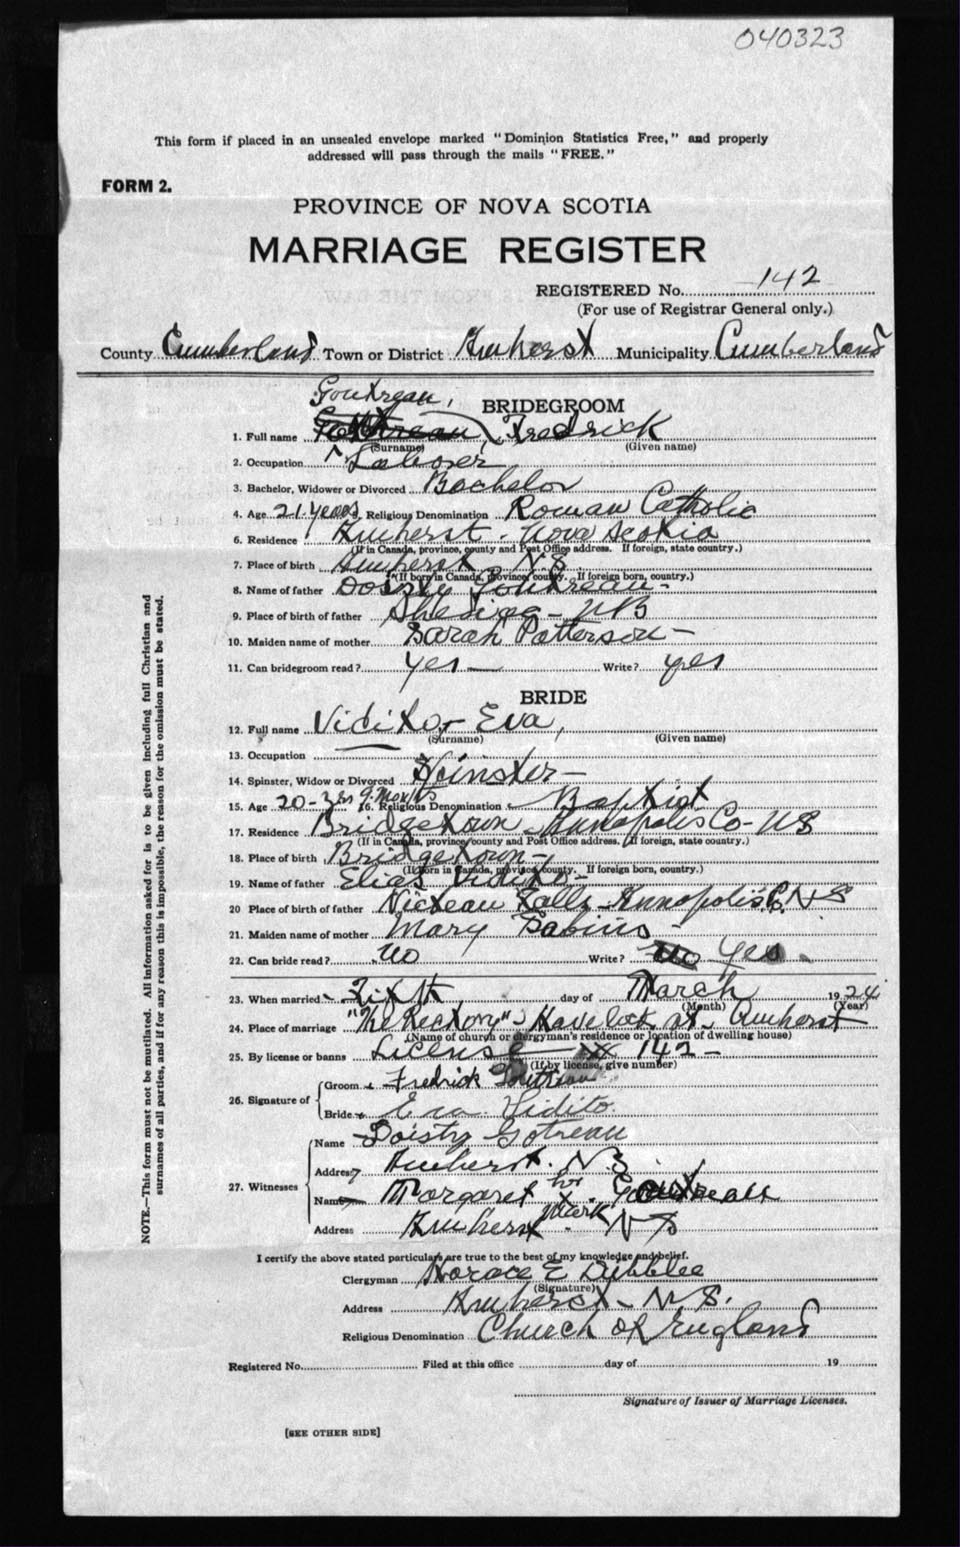 040323
This form if placed in an unsealed envelope marked "Dominion Statistics Free," and properly
addressed will pass through the mails "FREE."
FORM 2.
PROVINCE OF NOVA SCOTIA
MARRIAGE REGISTER
REGISTERED No. 142
(For use of Registrar General only.)
County Cumberland Town or District Amherst Municipality Cumberland
Goutreau,
BRIDEGROOM
1. Full name Fredrick
(Surname) (Given name)
2. Occupation Laborer
3. Bachelor, Widower or Divorced Bachelor
4. Age 21 years 5. Religious Denomination Roman Catholic
6. Residence Amherst - Nova Scotia
(If in Canada, province, county and Post Office address. If foreign, state country.)
7. Place of birth Amherst N S
(If born in Canada, province, county. If foreign born, country.)
8. Name of father Goutreau
9. Place of birth of father Shediac - N B
10. Maiden name of mother Sarah Patterson -
11. Can bridegroom read? yes Write? yes
BRIDE
12. Full name Vidito - Eva,
(Surname) (Given name)
13. Occupation —
14. Spinster, Widow or Divorced Spinster -
15. Age 20 - yrs 9 Months 16. Religious Denomination Baptist
17. Residence Bridgetown Annapolis Co - N S
(If in Canada, province, county and Post Office address. If foreign, state country.)
18. Place of birth Bridgetown -
(If born in Canada, province, county. If foreign born, country.)
19. Name of father Elias Vidito -
20 Place of birth of father Nicteau Falls - Annapolis Co N S
21. Maiden name of mother Mary -
22. Can bride read? No Write? No Yes.
23. When married - day of March 1924
(Month) (Year)
24. Place of marriage "The Rectory" - Havelock st - Amherst
(Name of church or clergyman's residence or location of dwelling house)
25. By license or banns License 142 -
(If by license, give number)
26. Signature of
Groom Fredrick Goutreau
Bride Eva Vidito.
27. Witnesses
Name Gotreau
Address Amherst. N. S
her
Name Margaret X Goutreau
mark
Address Amherst - N S
I certify the above stated particulars are true to the best of my knowledge and belief.
Clergyman Horace E Dibblee
(Signature)
Address Amherst - N. S.
Religious Denomination Church of England
Registered No. Filed at this office day of 19
Signature of Issuer of Marriage Licenses.
[SEE OTHER SIDE]
NOTE.—This form must not be mutilated. All information asked for is to be given including full Christian and
surnames of all parties, and if for any reason this is impossible, the reason for the omission must be stated.